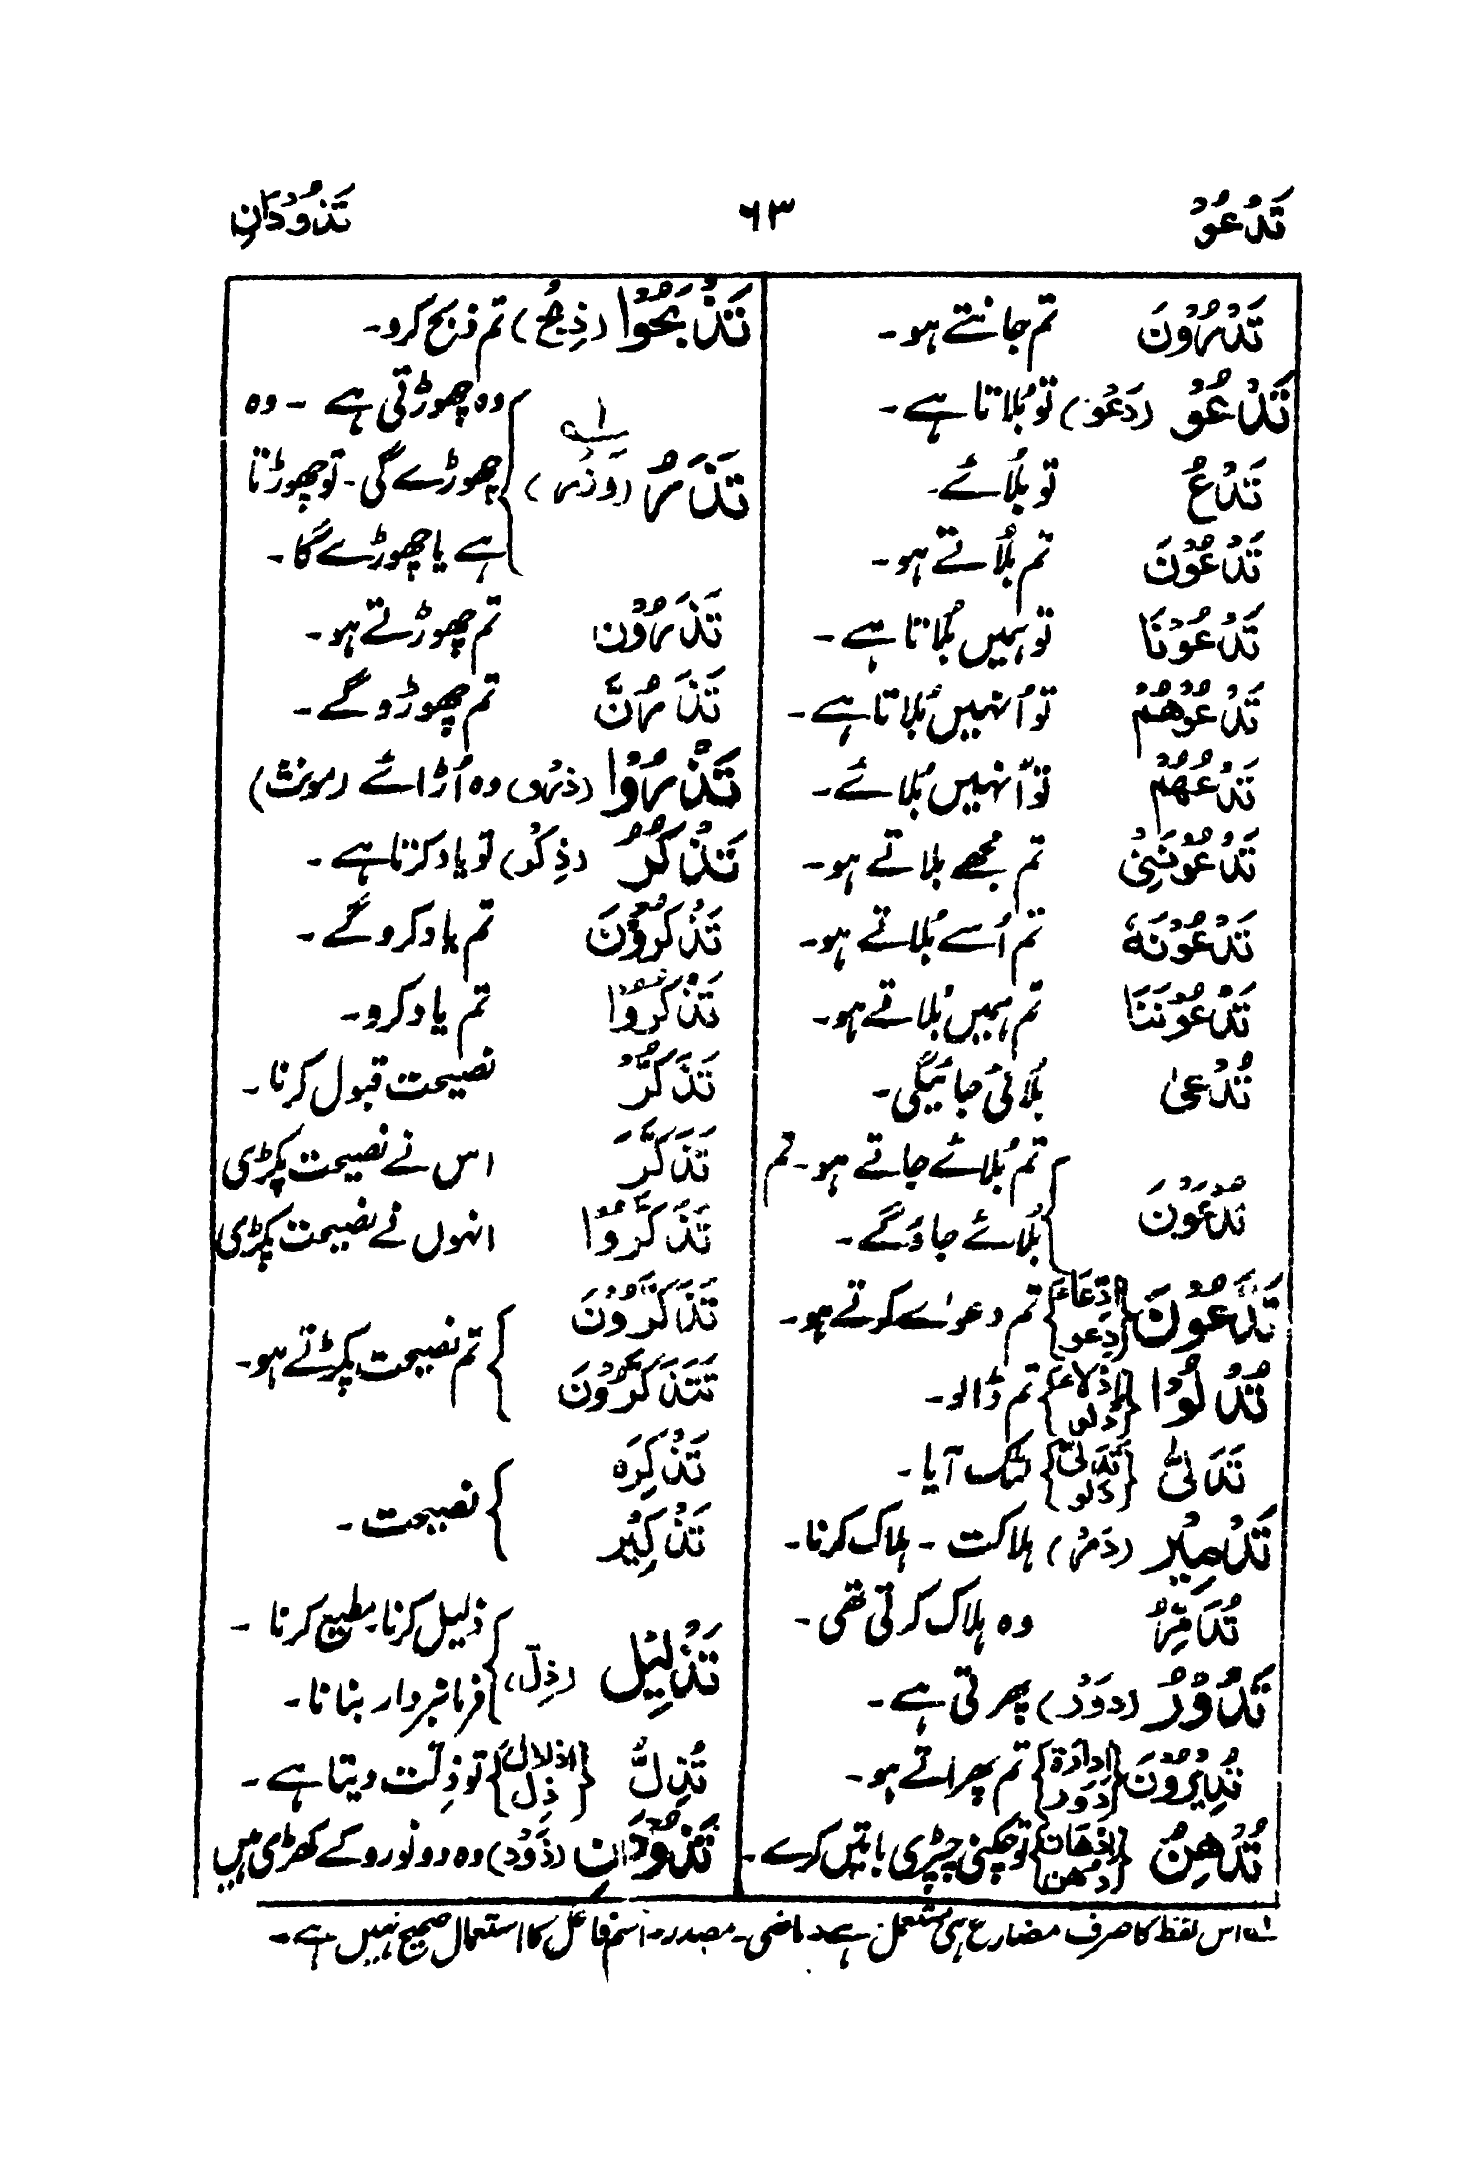 تَدْعُوْ ۶۳ تَذُوْدَانِ
تَدْرُوْنَ تم جانتے ہو۔
تَدْعُوْ (دَعْو) تو بُلاتا ہے۔
تَدْعُ تو بُلائے۔
تَدْعُوْنَ تم بُلاتے ہو۔
تَدْعُوْنَا تو ہمیں بُلاتا ہے۔
تَدْعُوْهُمْ تو اُنہیں بُلاتا ہے۔
تَدْعُهُمْ تو اُنہیں بُلائے۔
تَدْعُوْنَنِیْ تم مجھے بلاتے ہو۔
تَدْعُوْنَهٗ تم اُسے بُلاتے ہو۔
تَدْعُوْنَنَا تم ہمیں بُلاتے ہو۔
تُدْعیٰ بُلائی جائیگی۔
تُدْعَوْنَ تم بُلائے جاتے ہو۔ تم
بُلائے جاؤگے۔
تَدَّعُوْنَ {اِدِّعَاء دعو} تم دعوےٰ کرتے ہو۔
تُدْلُوْا {اِدْلاء دلو} تم ڈالو۔
تَدَلّٰی {تَدَلّیٰ دلو} لٹک آیا۔
تَدْمِیْر (دَمْر) ہلاکت ۔ ہلاک کرنا۔
تُدَمِّرُ وہ ہلاک کرتی تھی۔
تَدُوْرُ (دَوْر) پھرتی ہے۔
تُدِیْرُوْنَ {اِدَارَة دَور} تم پھراتے ہو۔
تُدْهِنُ {اِدْهَان دهن} تو چکنی چپڑی باتیں کرے۔
تَذْبَحُوْا (ذِبْحُ) تم ذبح کرو۔
وہ چھوڑتی ہے ۔ وہ
تَذَرُ ۱؎ (وَذْر) چھوڑے گی۔ تو چھوڑتا
ہے یا چھوڑے گا۔
تَذَرُوْنَ تم چھوڑتے ہو۔
تَذَرُنَّ تم چھوڑو گے۔
تَذْرُوْا (ذرو) وہ اُڑائے (مونث)
تَذْكُرُ (ذِکْر) تو یاد کرتا ہے۔
تَذْكُرُوْنَ تم یاد کرو گے۔
تَذْكُرُوْا تم یاد کرو۔
تَذَكُّرْ نصیحت قبول کرنا۔
تَذَكَّرَ اس نے نصیحت پکڑی
تَذَكَّرُوْا انہوں نے نصیحت پکڑی
تَذَكَّرُوْنَ
تَتَذَكَّرُوْنَ } تم نصیحت پکڑتے ہو۔
تَذْكِرَه
تَذْكِیْر } نصیحت۔
تَذْلِیْل (ذِلّ) ذلیل کرنا۔ مطیع کرنا ۔
فرمانبردار بنانا۔
تُذِلُّ {اذلال ذِلّ} تو ذِلّت دیتا ہے۔
تَذُوْدَانِ (ذَوْد) وہ دونو روکے کھڑی ہیں
۱؎ اس لفظ کا صرف مضارع ہی مستعمل ہے۔ ماضی۔ مصدر۔ اسم فاعل کا استعمال صحیح نہیں ہے۔